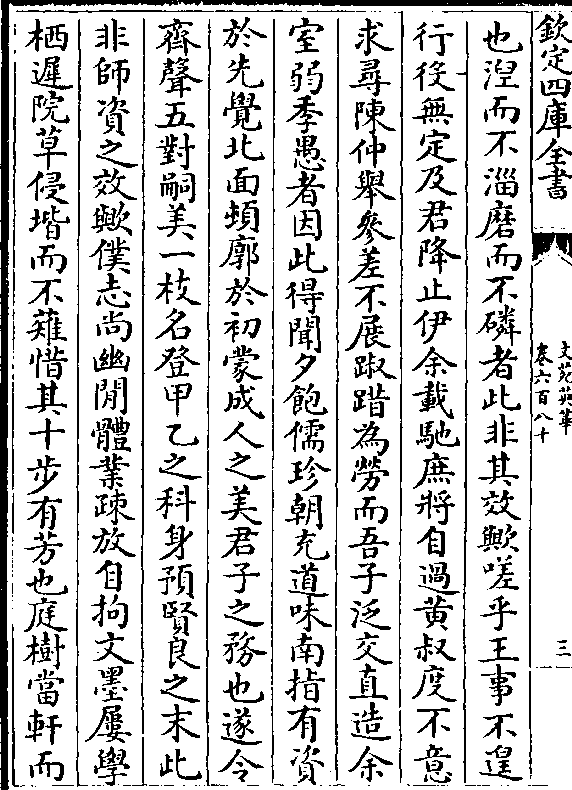 欽定四庫全書
文苑英華
卷六百八十
三
也湼而不淄磨而不磷者此非其效歟嗟乎王事不遑
行役無定及君降止伊余載馳庶將自過黄叔度不意
求尋陳仲舉參差不展踧踖為勞而吾子泛交直造余
室弱季愚者因此得聞夕飽儒珍朝充道味南指有資
於先覺北面頓廓於初蒙成人之美君子之務也遂令
齊聲五對嗣美一枝名登甲乙之科身預賢良之末此
非師資之效歟僕志尚幽閒體業疎放自拘文墨屢學
栖遲院草侵堦而不薙惜其十步有芳也庭樹當軒而